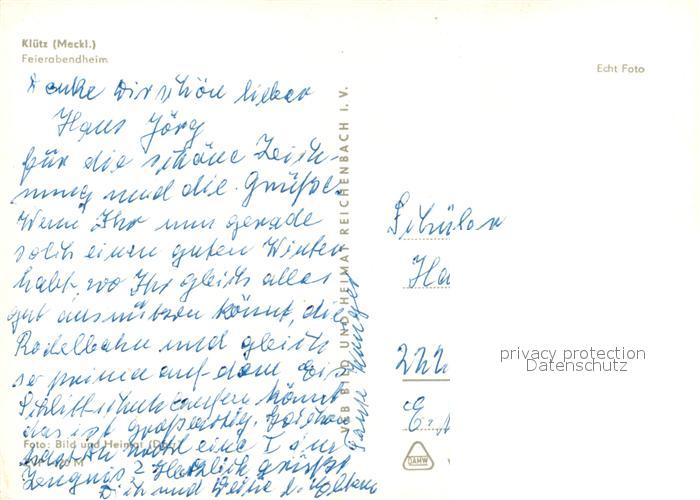 Klütz (Meckl.)
Feierabendheim
Echt Foto
Danke Dir schön lieber
Hans Jörg
für die schöne Zeich-
nung und die Grüße.
Wenn Ihr nun gerade
solch einen guten Winter
habt, wo Ihr gleich alles
gut ausnützen könnt, die
Rodelbahn und gleich
so prima auf dem Eis
Schlittschuhlaufen könnt
das ist großartig.
eine 1 im
Zeugnis? Herzlich grüßt
Dich und Deine l. Eltern
Tante
VGB BILD UND HEIMAT REICHENBACH I. V.
Schüler
Ha
Foto: Bild und Heimat
DAMW
privacy protection
Datenschutz